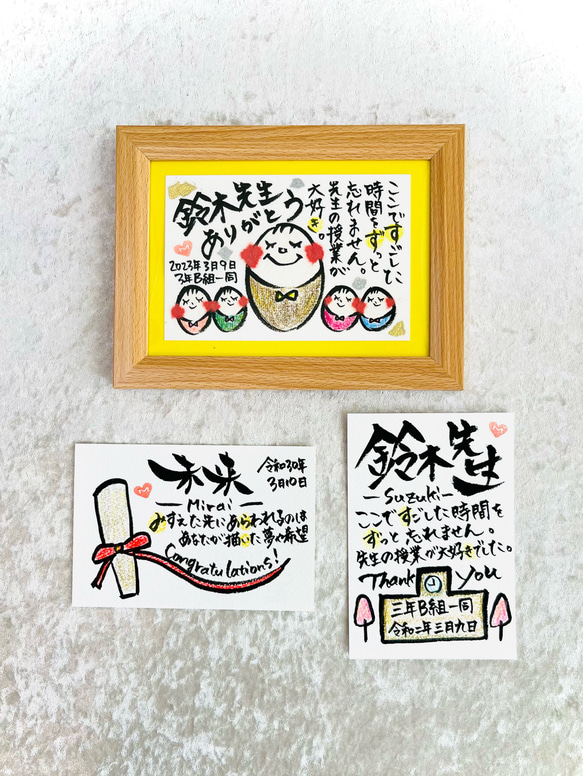 鈴木先生
ありがとう
ここですごした
時間をずっと
忘れません。
先生の授業が
大好き。
2023年3月9日
3年B組一同
未来
令和30年
3月10日
—Mirai—
みすえた先にあらわれるのは
あなたが描いた夢や希望
Congratulations!
鈴木先生
—Suzuki—
ここですごした時間を
ずっと忘れません。
先生の授業が大好きでした。
Thank you
三年B組一同
令和二年三月九日